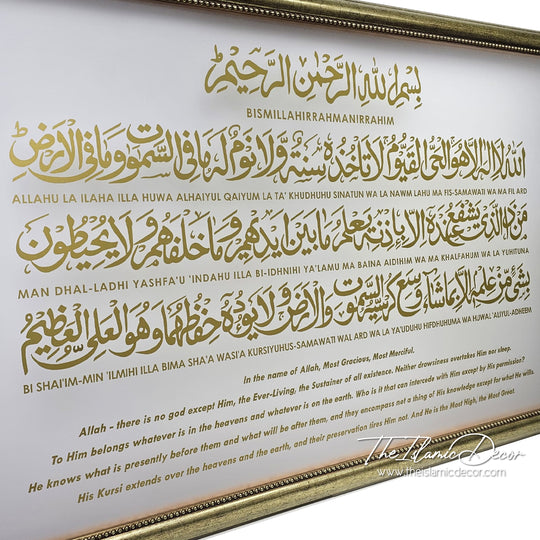 بِسْمِ اللهِ الرَّحْمٰنِ الرَّحِيْمِ
BISMILLAHIRRAHMANIRRAHIM
اَللهُ لَا اِلٰهَ اِلَّا هُوَ الْحَيُّ الْقَيُّوْمُ لَا تَأْخُذُهُ سِنَةٌ وَّلَا نَوْمٌ لَهُ مَا فِي السَّمٰوٰتِ وَمَا فِي الْاَرْضِ
ALLAHU LA ILAHA ILLA HUWA ALHAIYUL QAIYUM LA TA' KHUDHUHU SINATUN WA LA NAWM LAHU MA FIS-SAMAWATI WA MA FIL ARD
مَنْ ذَا الَّذِيْ يَشْفَعُ عِنْدَهُ اِلَّا بِاِذْنِهِ يَعْلَمُ مَا بَيْنَ اَيْدِيْهِمْ وَمَا خَلْفَهُمْ وَلَا يُحِيْطُوْنَ
MAN DHAL-LADHI YASHFA'U 'INDAHU ILLA BI-IDHNIHI YA'LAMU MA BAINA AIDIHIM WA MA KHALFAHUM WA LA YUHITUNA
بِشَيْءٍ مِّنْ عِلْمِهِ اِلَّا بِمَا شَاءَ وَسِعَ كُرْسِيُّهُ السَّمٰوٰتِ وَالْاَرْضَ وَلَا يَئُوْدُهُ حِفْظُهُمَا وَهُوَ الْعَلِيُّ الْعَظِيْمُ
BI SHAI'IM-MIN 'ILMIHI ILLA BIMA SHA'A WASI'A KURSIYUHUS-SAMAWATI WAL ARD WA LA YA'UDUHU HIFDHUHUMA WA HUWAL 'ALIYUL-ADHEEM
In the name of Allah, Most Gracious, Most Merciful.
Allah - there is no god except Him, the Ever-Living, the Sustainer of all existence. Neither drowsiness overtakes Him nor sleep.
To Him belongs whatever is in the heavens and whatever is on the earth. Who is it that can intercede with Him except by His permission?
He knows what is presently before them and what will be after them, and they encompass not a thing of His knowledge except for what He wills.
His Kursi extends over the heavens and the earth, and their preservation tires Him not. And He is the Most High, the Most Great.
The Islamic Decor
www.theislamicdecor.com